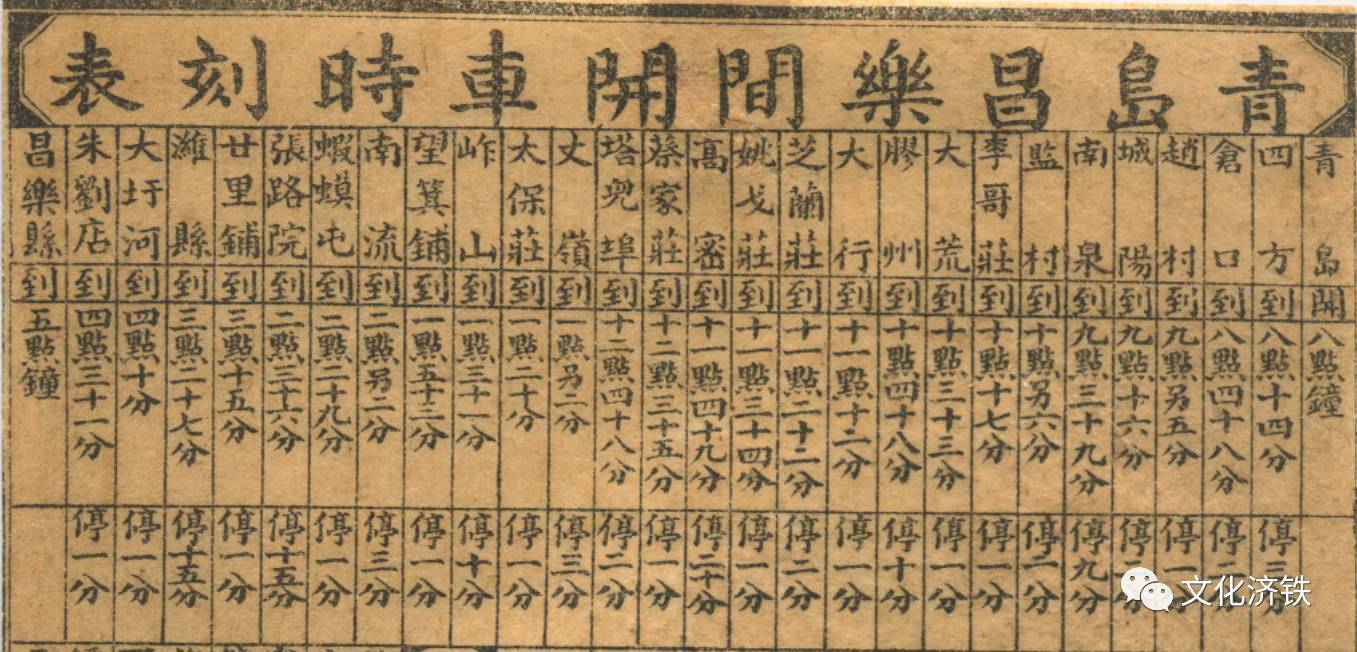 青島昌樂間開車時刻表
青島開八點鐘
四方到八點十四分停三
倉口到八點四十八分停一
趙村到九點另五分停一
城陽到九點十六分停
南泉到九點三十九分停九分
監村到十點另六分停一分
李哥莊到十點十七分停一分
大荒到十點三十三分停一分
膠州到十點四十八分停十分
大行到十一點十二分停一分
芝蘭莊到十一點二十二分停二分
姚戈莊到十一點三十四分停一分
高密到十一點四十九分停二十分
蔡家莊到十二點三十五分停一分
塔兒埠到十二點四十八分停二分
丈嶺到一點另二分停三分
太保莊到一點二十分停一分
岞山到一點三十一分停十分
望箕鋪到一點五十二分停一分
南流到二點另二分停三分
蝦蟆屯到二點二十九分停一分
張路院到二點三十六分停十五分
廿里鋪到三點十五分停一分
濰縣到三點二十七分停十五分
大圩河到四點十分停一分
朱劉店到四點三十一分停一分
昌樂縣到五點鐘
文化济铁